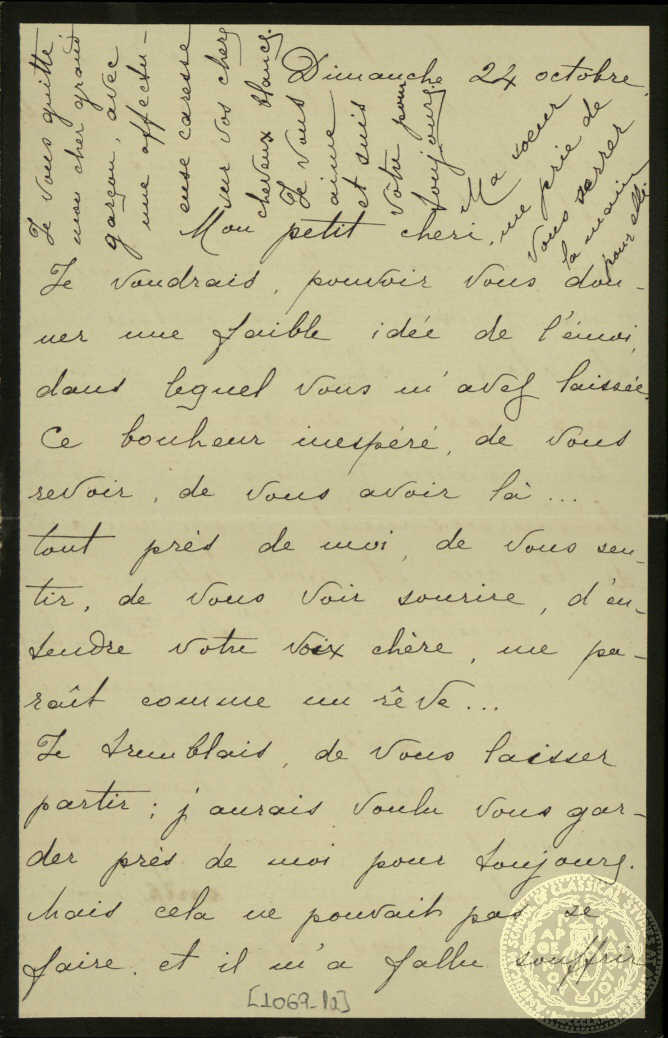 Dimanche 24 octobre.
Mon petit cheri,
Je voudrais, pouvoir vous don-
ner une faible idée de l'émoi,
dans lequel vous m'avez laissée.
Ce bonheur inespéré, de vous
revoir, de vous avoir là...
tout près de moi, de vous sen-
tir, de vous voir sourire, d'en-
tendre votre voix chère, me pa-
raît comme un rêve...
Je tremblais, de vous laisser
partir ; j'aurais voulu vous gar-
der près de moi pour toujours.
Mais cela ne pouvait pas se
faire, et il m'a fallu souffrir
Je vous quitte
mon cher grand
garçon, avec
une affectu-
euse caresse
sur vos chers
cheveux blancs.
Je vous
aime
et suis
vôtre pour
toujours.
Ma soeur
me prie de
vous serrer
la main
pour elle.
[1069-12]
SCHOOL OF CLASSICAL STUDIES